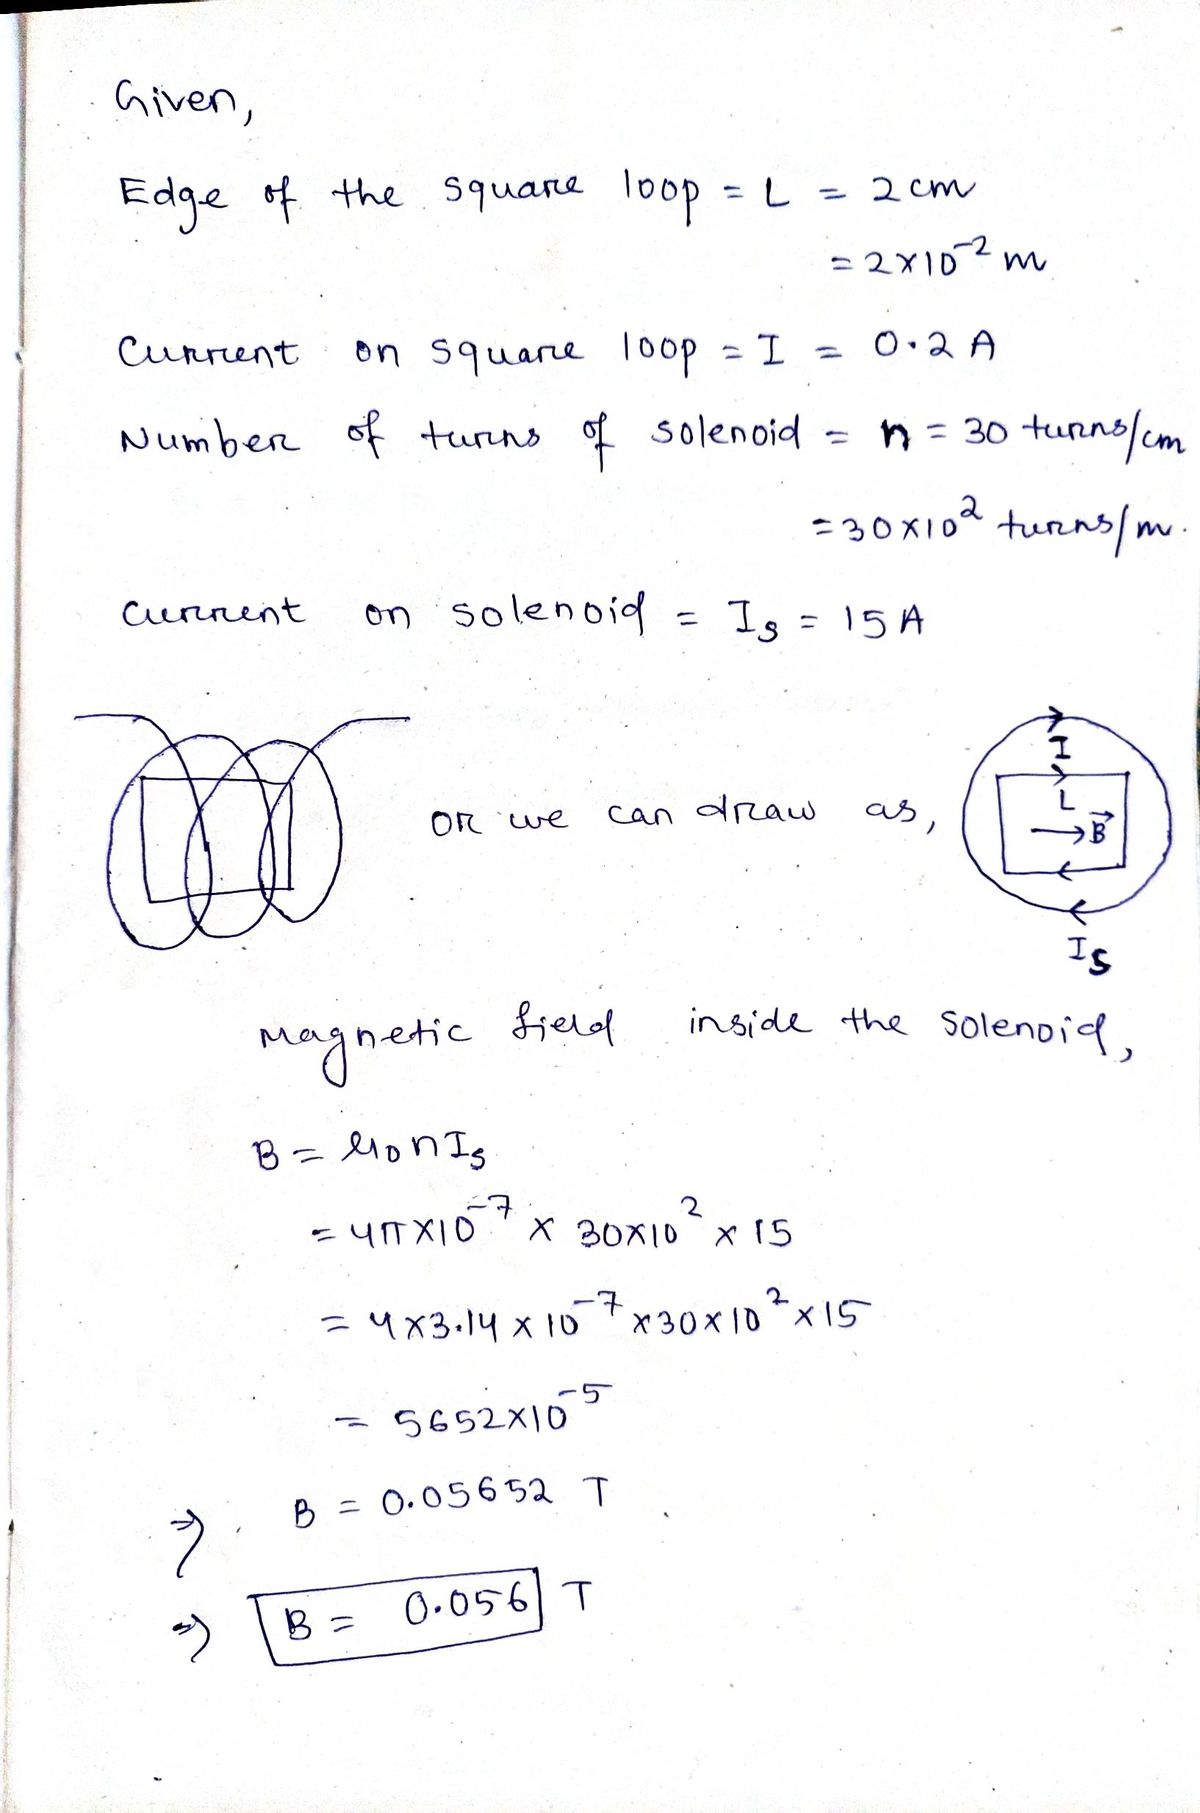 Given,
Edge of the square loop = L = 2 cm
= 2×10⁻² m
Current on square loop = I = 0.2 A
Number of turns of solenoid = n = 30 turns/cm
= 30×10² turns/m.
Current on solenoid = Is = 15 A
I
L
or we can draw as,
→B
Is
Magnetic field inside the solenoid,
B = μ₀nIs
= 4π×10⁻⁷ × 30×10² × 15
= 4×3.14×10⁻⁷×30×10²×15
= 5652×10⁻⁵
⇒ B = 0.05652 T
⇒ B = 0.056 T